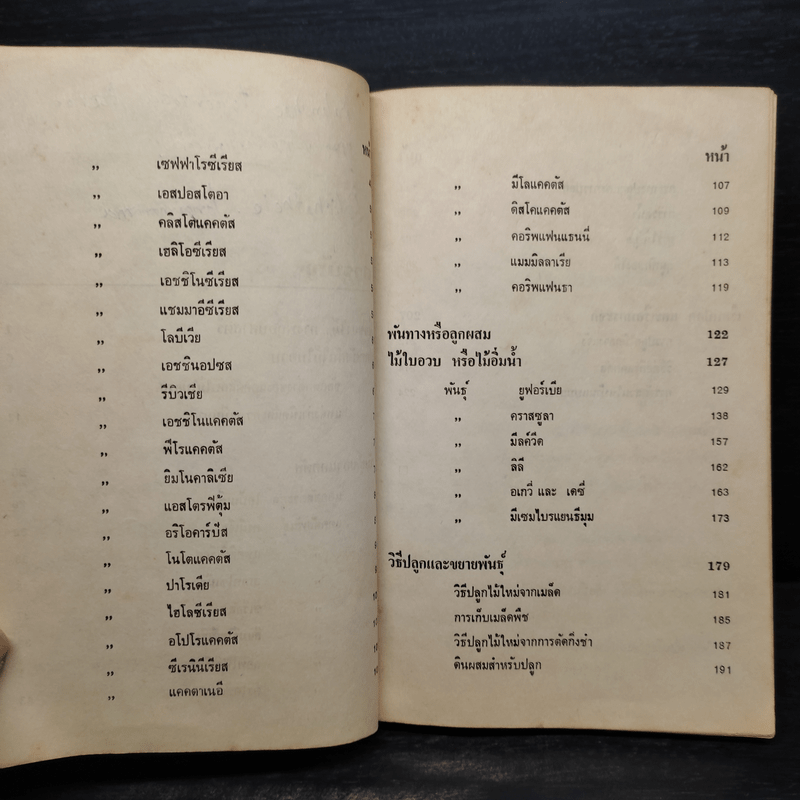 „ เซฟฟาโรซีเรียส
„ เอสปอสโตอา
„ คลิสโตแคคตัส
„ เฮลิโอซีเรียส
„ เอชชิโนซีเรียส
„ แชมมาอีซีเรียส
„ โลบีเวีย
„ เอชชินอปซส
„ รีบิวเชีย
„ เอชชิโนแคคตัส
„ ฟีโรแคคตัส
„ ยิมโนคาลิเซีย
„ แอสโตรฟิตุ้ม
„ อริโอคาร์ปัส
„ โนโตแคคตัส
„ ปาโรเดีย
„ ไฮโลซีเรียส
„ อโปโรแคคตัส
„ ซีเรนินีเรียส
„ แคคตาเนอี
หน้า
„ มีโลแคคตัส 107
„ ดิสโคแคคตัส 109
„ คอริพแฟนแธนนี่ 112
„ แมมมิลลาเรีย 113
„ คอริพแฟนธา 119
พันทางหรือลูกผสม 122
ไม้ใบอวบ หรือไม้อิ่มน้ำ 127
พันธุ์ ยูฟอร์เบีย 129
„ คราสซูลา 138
„ มีลค์วีด 157
„ ลิลี 162
„ อเกวี่ และ เดซี่ 163
„ มีเซมไบรแยนธีมุม 173
วิธีปลูกและขยายพันธุ์ 179
วิธีปลูกไม้ใหม่จากเมล็ด 181
การเก็บเมล็ดพืช 185
วิธีปลูกไม้ใหม่จากการตัดกิ่งชำ 187
ดินผสมสำหรับปลูก 191